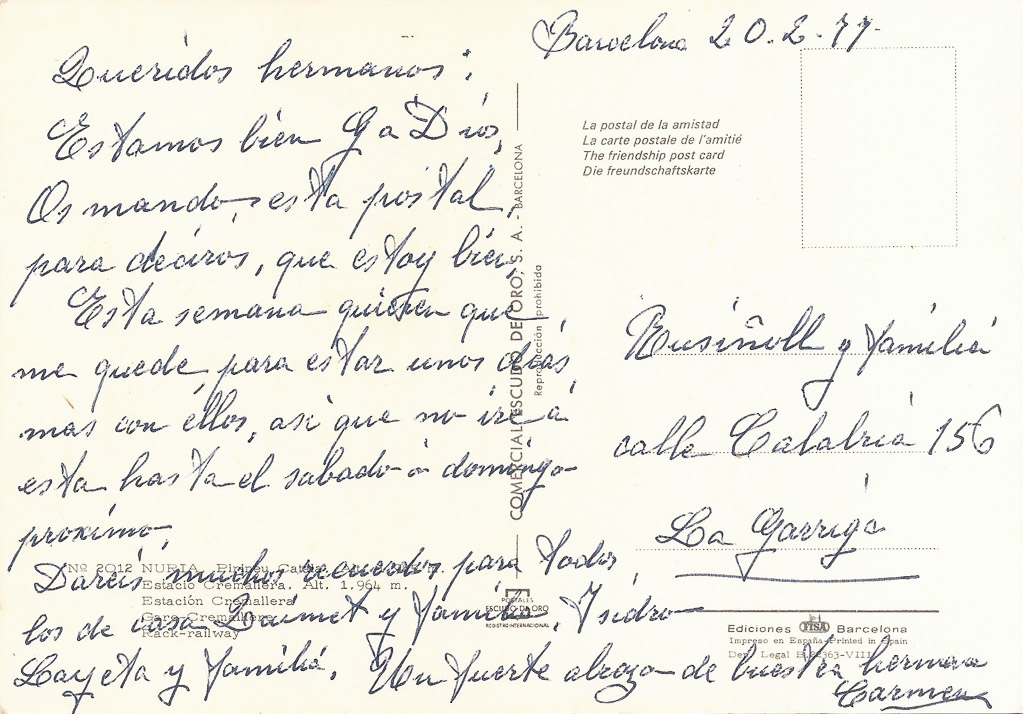 Barcelona 20.2.77.
Queridos hermanos:
Estamos bien G a Dios,
Os mando, esta postal,
para deciros, que estoy bien,
Esta semana quieren que
me quede, para estar unos dias
mas con éllos, asi que no iré á
esta hasta el sabado ó domingo
proximo,
Dareis muchos recuerdos para todos,
los de casa Jaumet y familia, Ysidro
Layeta y familia, Un fuerte abrazo de buestra hermana
Carmen
La postal de la amistad
La carte postale de l'amitié
The friendship post card
Die freundschaftskarte
COMERCIAL ESCUDO DE ORO, S. A. - BARCELONA
Reproducción prohibida
Rusiñoll y familia
calle Calabria 156
La Garriga
Nº 2012 NURIA. Pirineu Català.
Estació Cremallera. Alt. 1.964 m.
Estación Cremallera
Gare Cremaillère
Rack-railway
POSTALES
ESCUDO DE ORO
REGISTRO INTERNACIONAL
Ediciones FISA Barcelona
Impreso en España-Printed in Spain
Dep. Legal B. 363-VIII